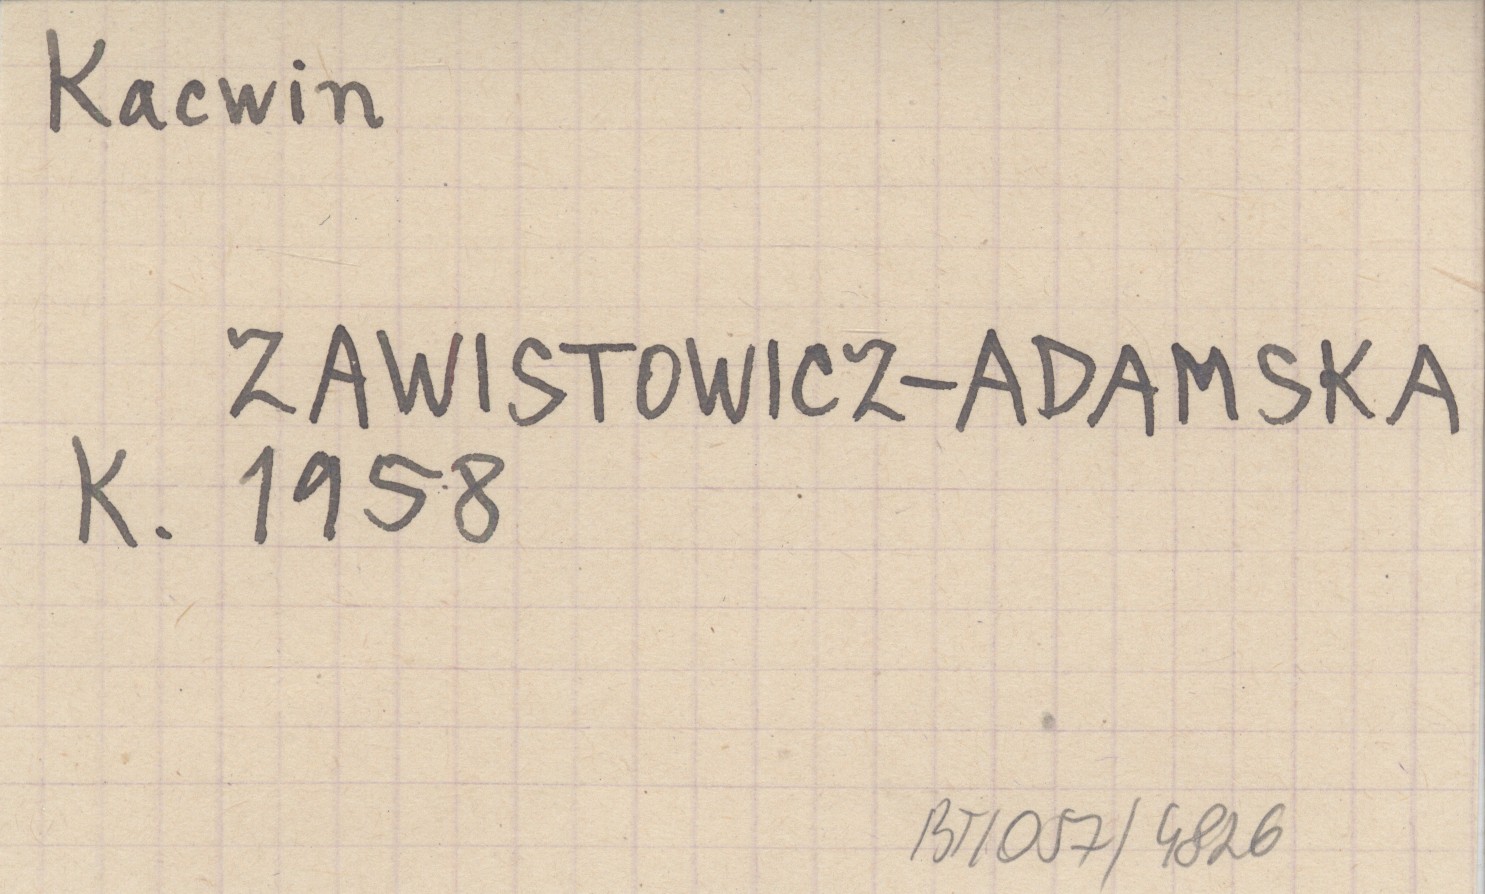 Kacwin
ZAWISTOWICZ-ADAMSKA
K. 1958
BT/057/4826